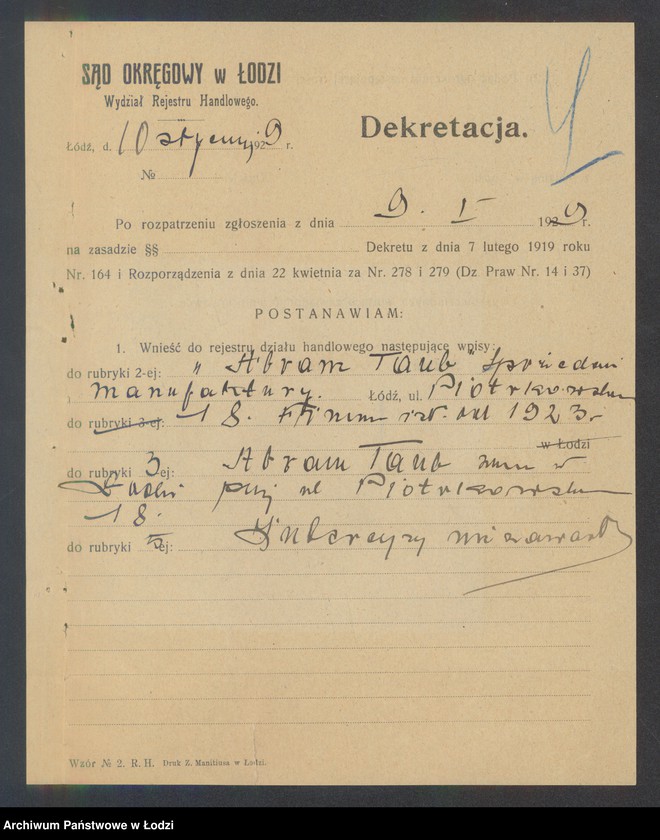 SĄD OKRĘGOWY w ŁODZI
Wydział Rejestru Handlowego.
Dekretacja.
Łódź, d. 10 stycznia 1929 r.
№
Po rozpatrzeniu zgłoszenia z dnia 9. I 1929 r.
na zasadzie §§ Dekretu z dnia 7 lutego 1919 roku
Nr. 164 i Rozporządzenia z dnia 22 kwietnia za Nr. 278 i 279 (Dz Praw Nr. 14 i 37)
POSTANAWIAM:
1. Wnieść do rejestru działu handlowego następujące wpisy:
do rubryki 2-ej: „Abram Taub" Sprzedaż
manufaktury. Łódź, ul. Piotrkowska
do rubryki 3-ej: 18. Firma istn. od 1923 r.
w Łodzi
do rubryki 3 ej: Abram Taub zam w
Łodzi przy ul Piotrkowska
18.
do rubryki ej: Intercyzy nie zawarł
Wzór № 2. R. H. Druk Z. Manitiusa w Łodzi.
Archiwum Państwowe w Łodzi